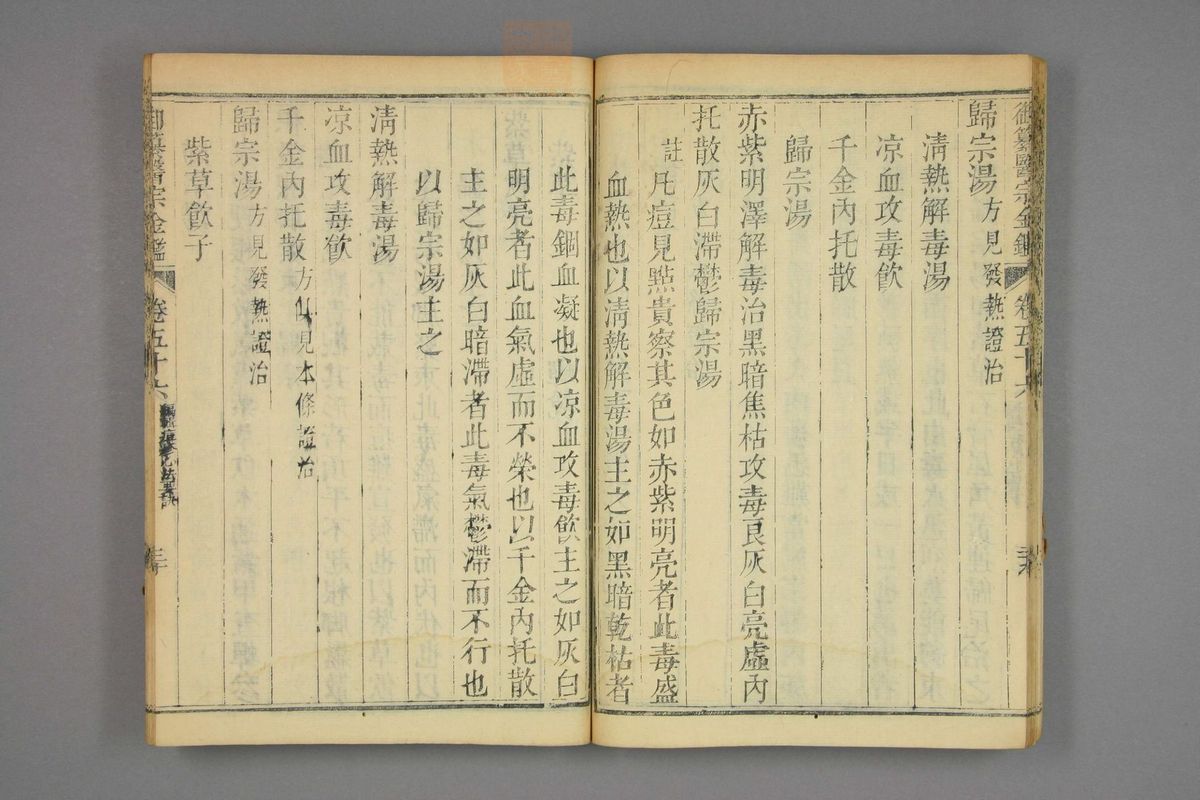 御纂醫宗金鑑 卷五十六
歸宗湯方見發熱證治
清熱解毒湯
凉血攻毒飲
千金內托散
歸宗湯
赤紫明澤解毒治黑暗焦枯攻毒良灰白亮虛內
托散灰白滯鬱歸宗湯
註 凡痘見點貴察其色如赤紫明亮者此毒盛
血熱也以清熱解毒湯主之如黑暗乾枯者
此毒錮血凝也以凉血攻毒飲主之如灰白
明亮者此血氣虛而不榮也以千金內托散
主之如灰白暗滯者此毒氣鬱滯而不行也
以歸宗湯主之
清熱解毒湯
凉血攻毒飲
千金內托散方俱見本條證治
歸宗湯方見發熱證治
紫草飲子
御纂醫宗金鑑 卷五十六